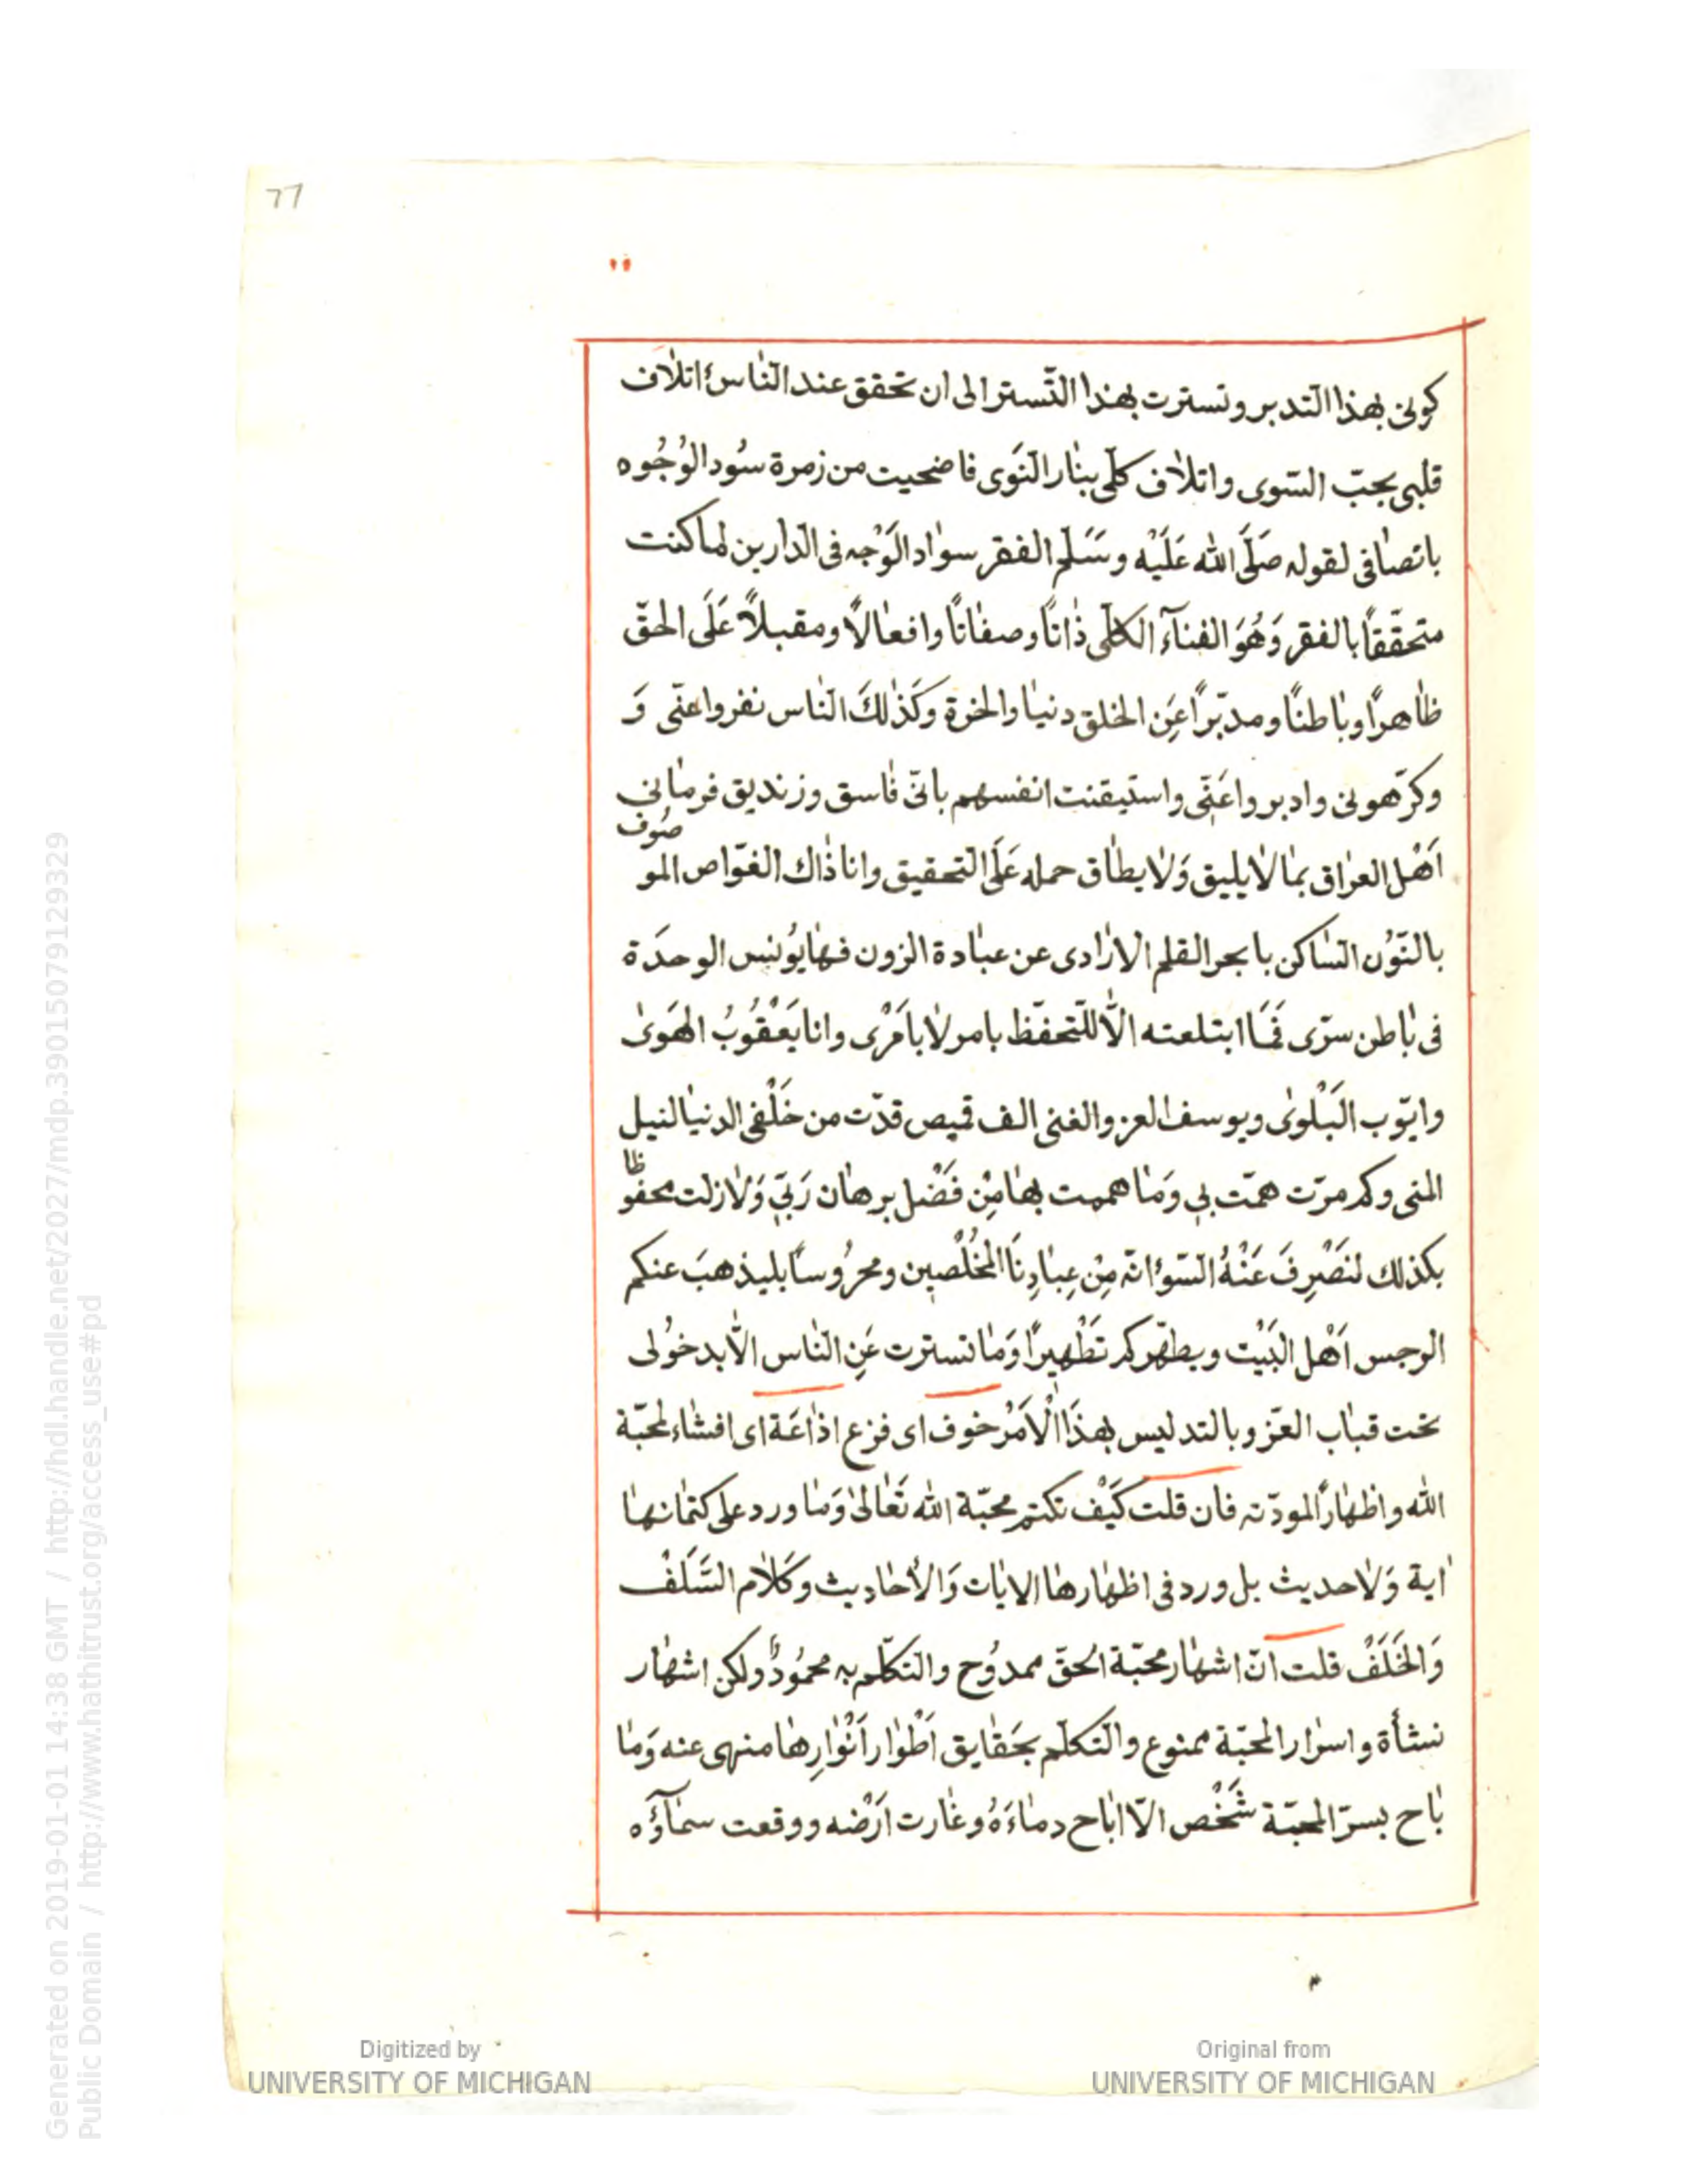 77
كونى بهذا التدبر وتسترت بهذا التّستر الى ان تحقق عند النّاس اتلاف
قلبى بحبّ السّوى واتلاف كلّى بنار النَوى فاضحيت من زمرة سُود الوُجُوه
باتصافى لقوله صَلَّى الله عَلَيْه وسَلّم الفقر سواد الوَجْه فى الدارين لما كنت
متحقّقاً بالفقر وَهُوَ الفنآء الكلّى ذاتاً وصفاتاً وافعالاً ومقبلاً عَلَى الحقّ
ظاهراً وباطناً ومدبّراً عَن الخلق دنيا والخرة وكَذلكَ النّاس نفروا عنّى وَ
وكرّهونى وادبروا عَنّى واستيقنت انفسهم بانّى فاسق وزنديق فرمانى
اَهْل العراق بما لا يليق وَلا يطاق حمله عَلَى التحقيق وانا ذاك الغوّاص المو
صُوف
بالنّوُن السّاكن با بحر القلم الارادى عن عبادة الزون فها يوُنس الوحدَة
فى باطن سرّى فَمَا ابتلعته الاّ للتّحفّظ بامر لا بامْرى وانا يَعْقُوبُ الهَوىٰ
وايّوب البَلْوىٰ ويوسف العز والغنى الف قميص قدّت من خَلْفى الدنيا لنيل
المنى وكم مرّت همّت بى وَما هممت بها مِنْ فَضْل برهان رَبّى وَلا زلت محفو
ظا
بكذلك لنَصْرِفَ عَنْهُ السّوء انّه مِنْ عِبادِنَا المُخْلَصين ومحرُوساً بليذهبَ عنكم
الرجس اَهْل البَيْت ويطهّركم تَطْهيراً وَما تسترت عَنِ النّاس الاّ بدخوُلى
تحت قباب العّز وبالتدليس بهذَا الْاَمْر خوف اى فزع اذاعَة اى افشاء لمحبّة
الله واظهارً المودّته فان قلت كَيْف تكتم محبّة الله تَعالىٰ وَما ورد على كتمانها
اية وَلا حديث بل ورد فى اظهارها الايات وَالأحاديث وكَلام السَّلَفْ
وَالخَلَفْ قلت انّ اشهار محبّة الحقّ ممدوُح والتكلّم به محموُدٌ ولكن اشهار
نشأة واسرار المحبّة ممنوع والتكلّم بحَقايق اَطْوار اَنْوارِها منهى عنه وَما
باح بسرّ المحبّة شَخْص الاّ اباح دماءَهُ وغارت ارْضه ووقعت سمآؤُه
Digitized by
UNIVERSITY OF MICHIGAN
Original from
UNIVERSITY OF MICHIGAN
Generated on 2019-01-01 14:38 GMT / http://hdl.handle.net/2027/mdp.39015079129329
Public Domain / http://www.hathitrust.org/access_use#pd